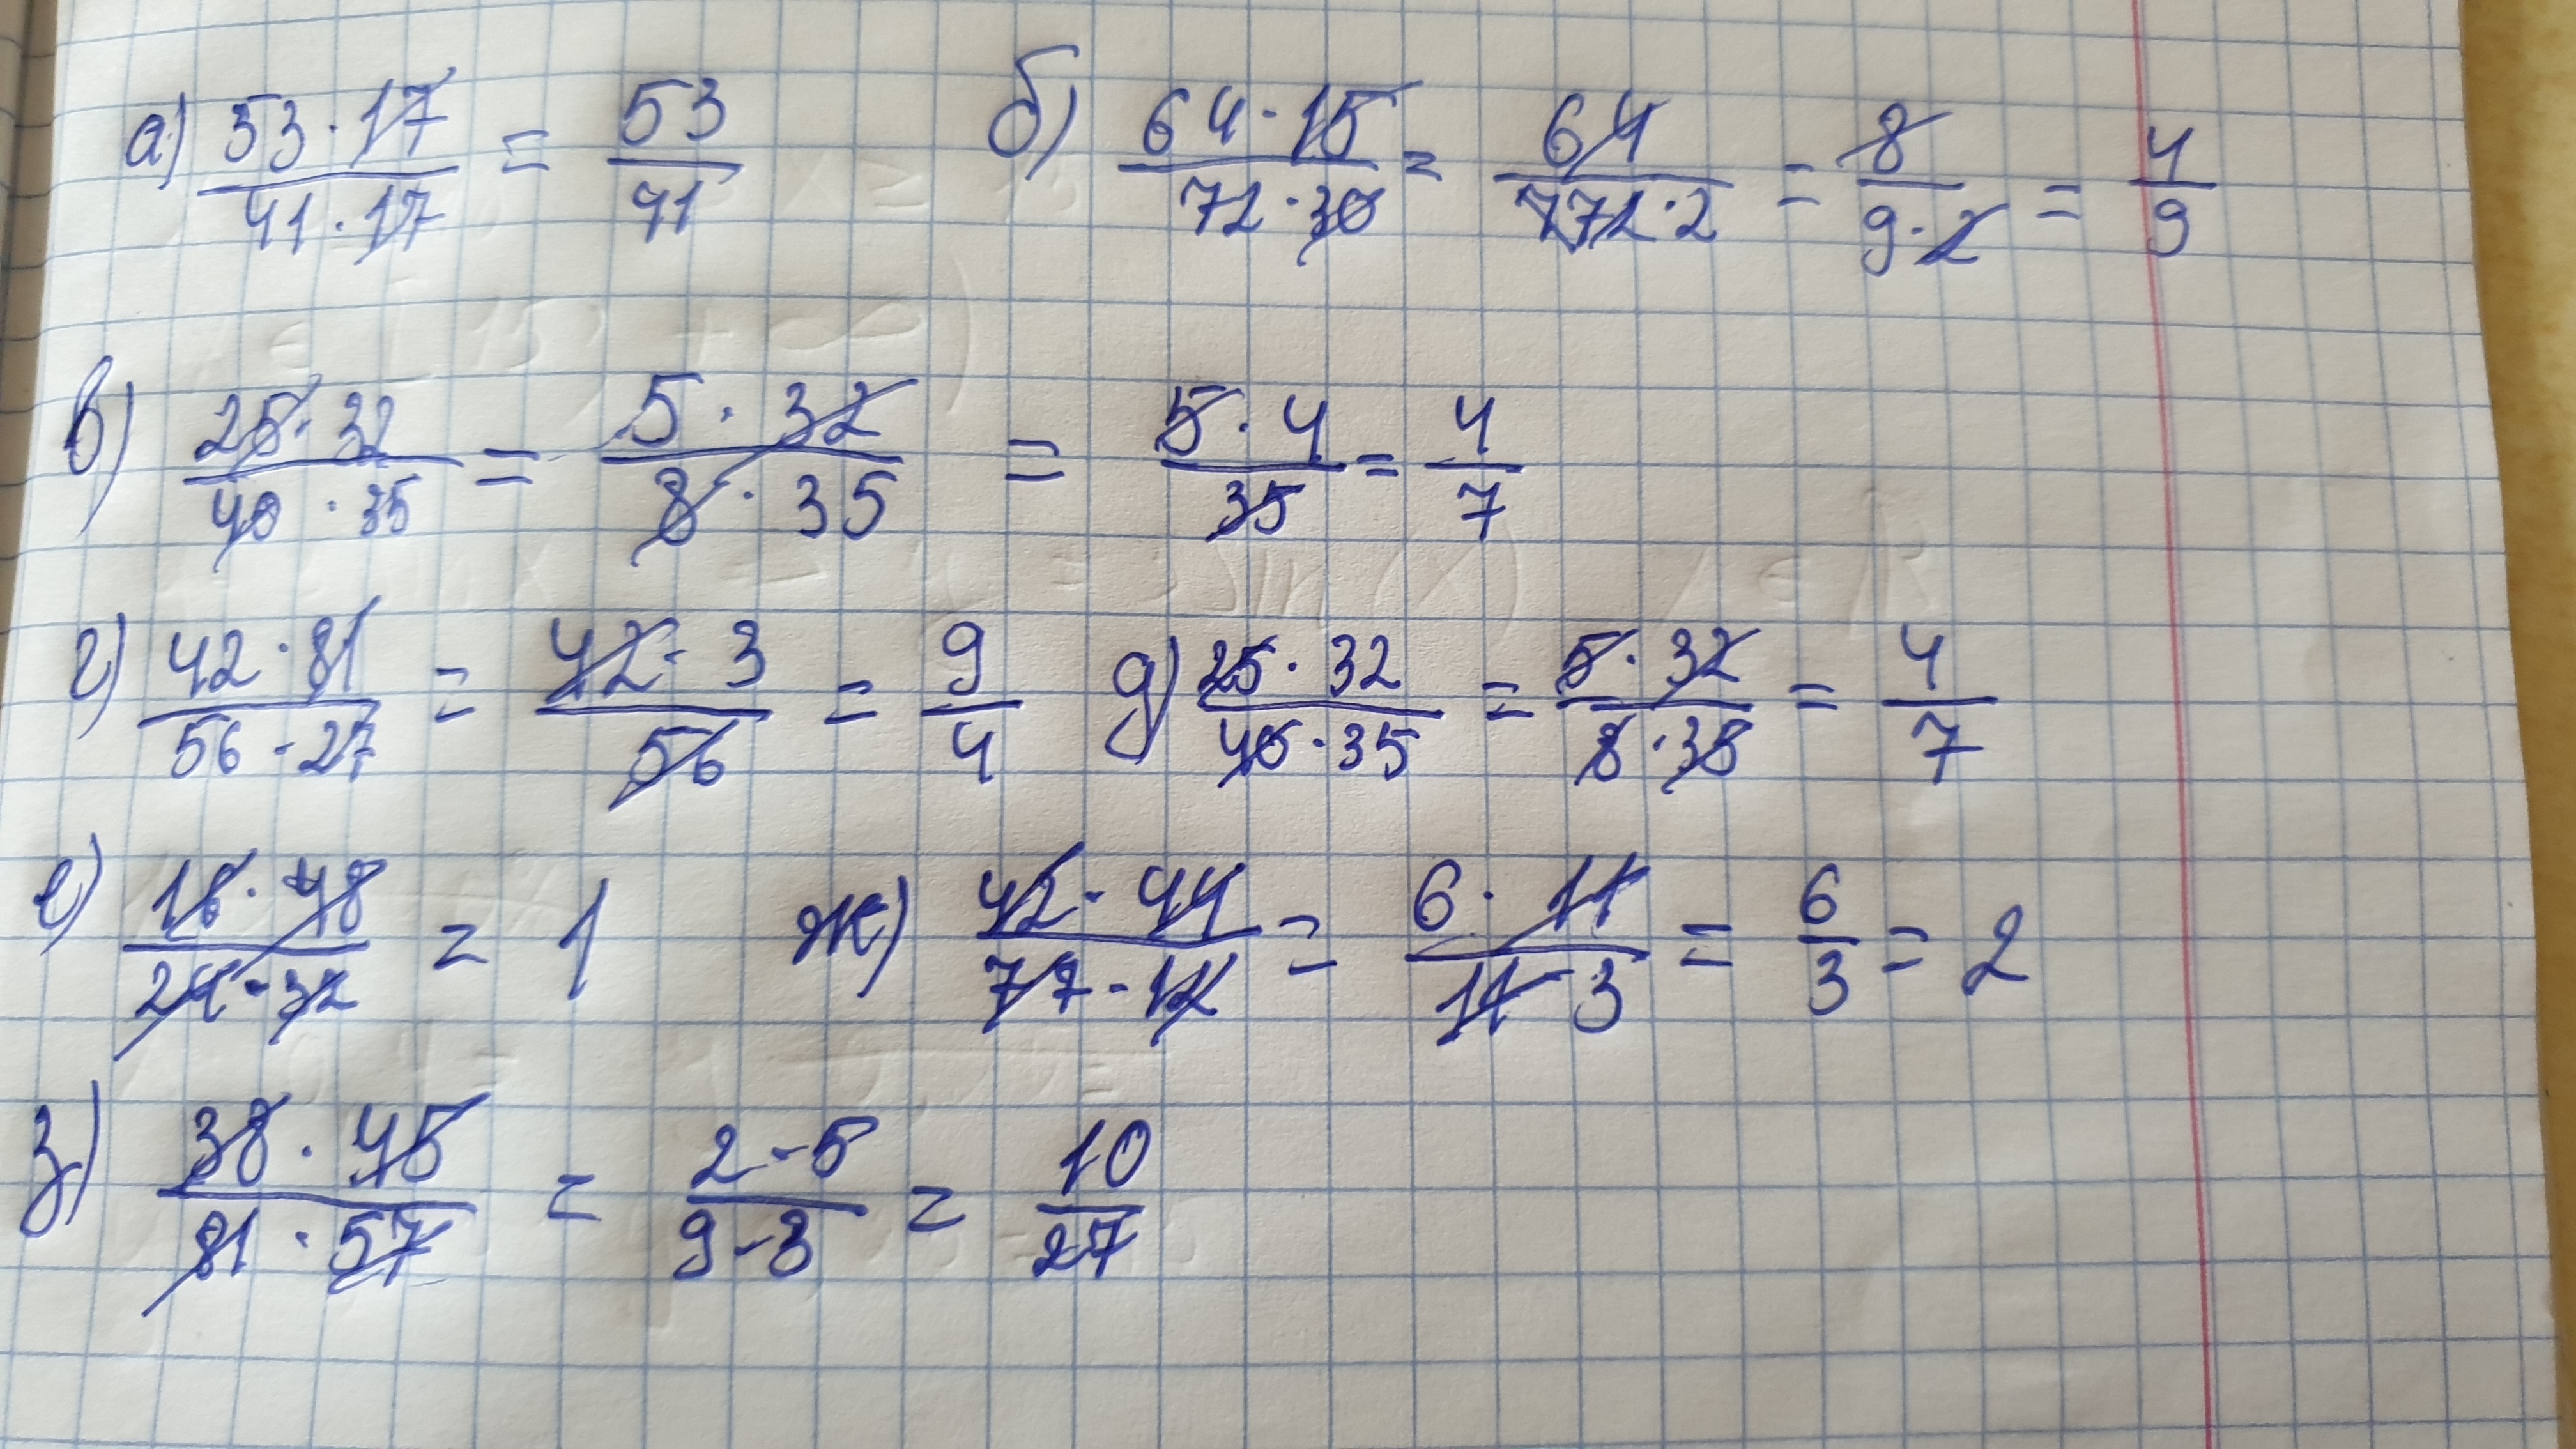 а) (53·17)/(41·17) = 53/41 б) (64·15)/(72·30) = 64/(72·2) = 8/(9·2) = 4/9
в) (25·32)/(40·35) = (5·32)/(8·35) = (5·4)/35 = 4/7
г) (42·81)/(56·27) = (42·3)/56 = 9/4 д) (25·32)/(40·35) = (5·32)/(8·35) = 4/7
е) (16·48)/(24·32) = 1 ж) (42·44)/(77·12) = (6·11)/(11·3) = 6/3 = 2
з) (38·45)/(81·57) = (2·5)/(9·3) = 10/27